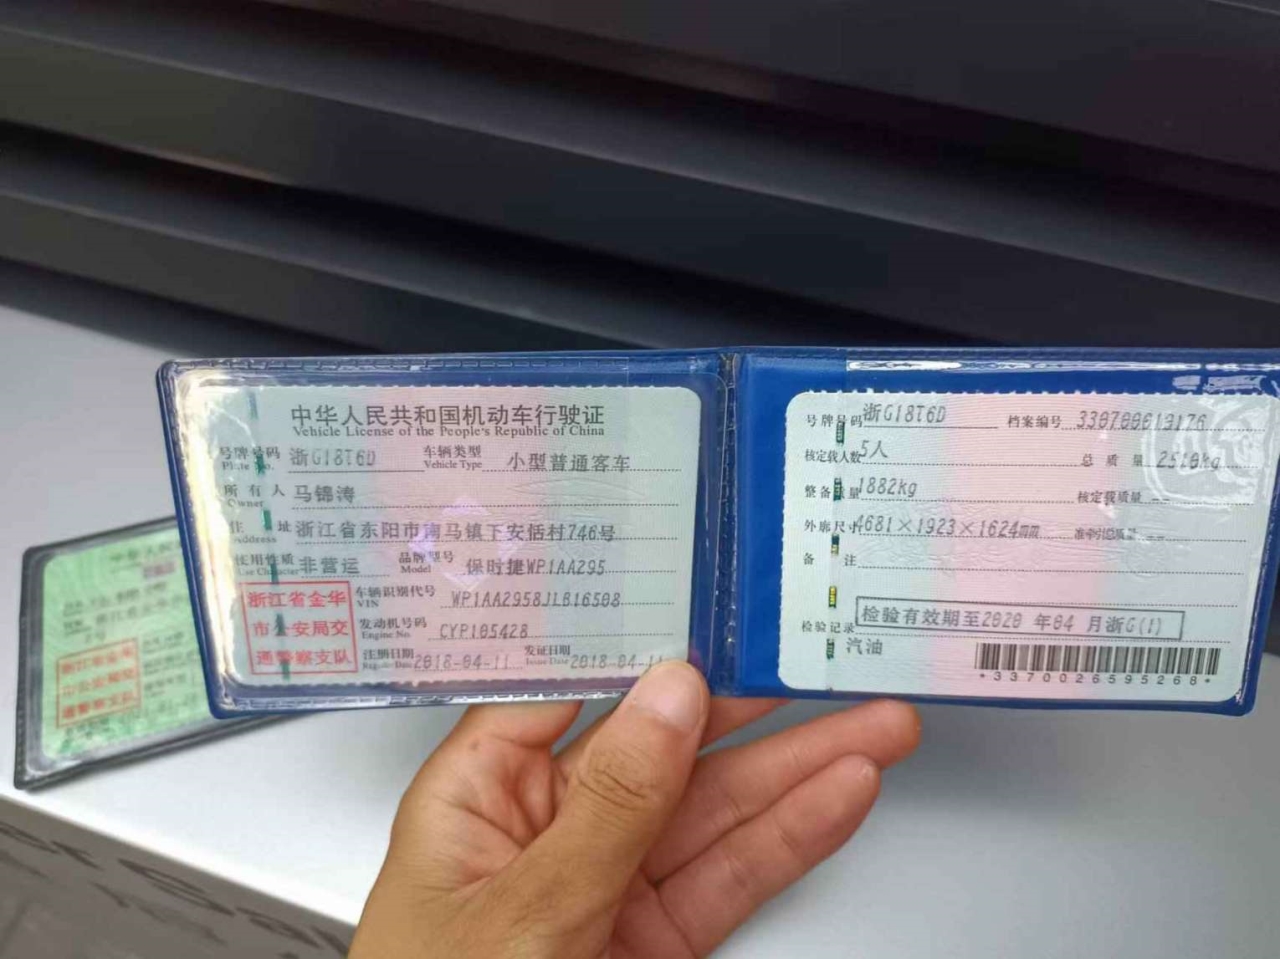 中华人民共和国机动车行驶证
Vehicle License of the People's Republic of China
号牌号码 浙G18T6D 车辆类型 小型普通客车
Plate No. Vehicle Type
所有人 马锦涛
Owner
住址 浙江省东阳市南马镇下安恬村746号
Address
使用性质 非营运 品牌型号 保时捷WP1AA295
Use Character Model
浙江省金华
市公安局交
通警察支队
车辆识别代号 WP1AA2958JLB16508
VIN
发动机号码 CYP105428
Engine No.
注册日期 2018-04-11 发证日期 2018-04-11
Register Date Issue Date
号牌号码 浙G18T6D 档案编号 330700619176
核定载人数 5人 总质量 2510kg
整备质量 1882kg 核定载质量 --
外廓尺寸 4681×1923×1624mm 准牵引总质量 --
备注
检验记录 检验有效期至2020年04月浙G(1)
汽油
*3370026595268*
浙江省金华
市公安局交
通警察支队